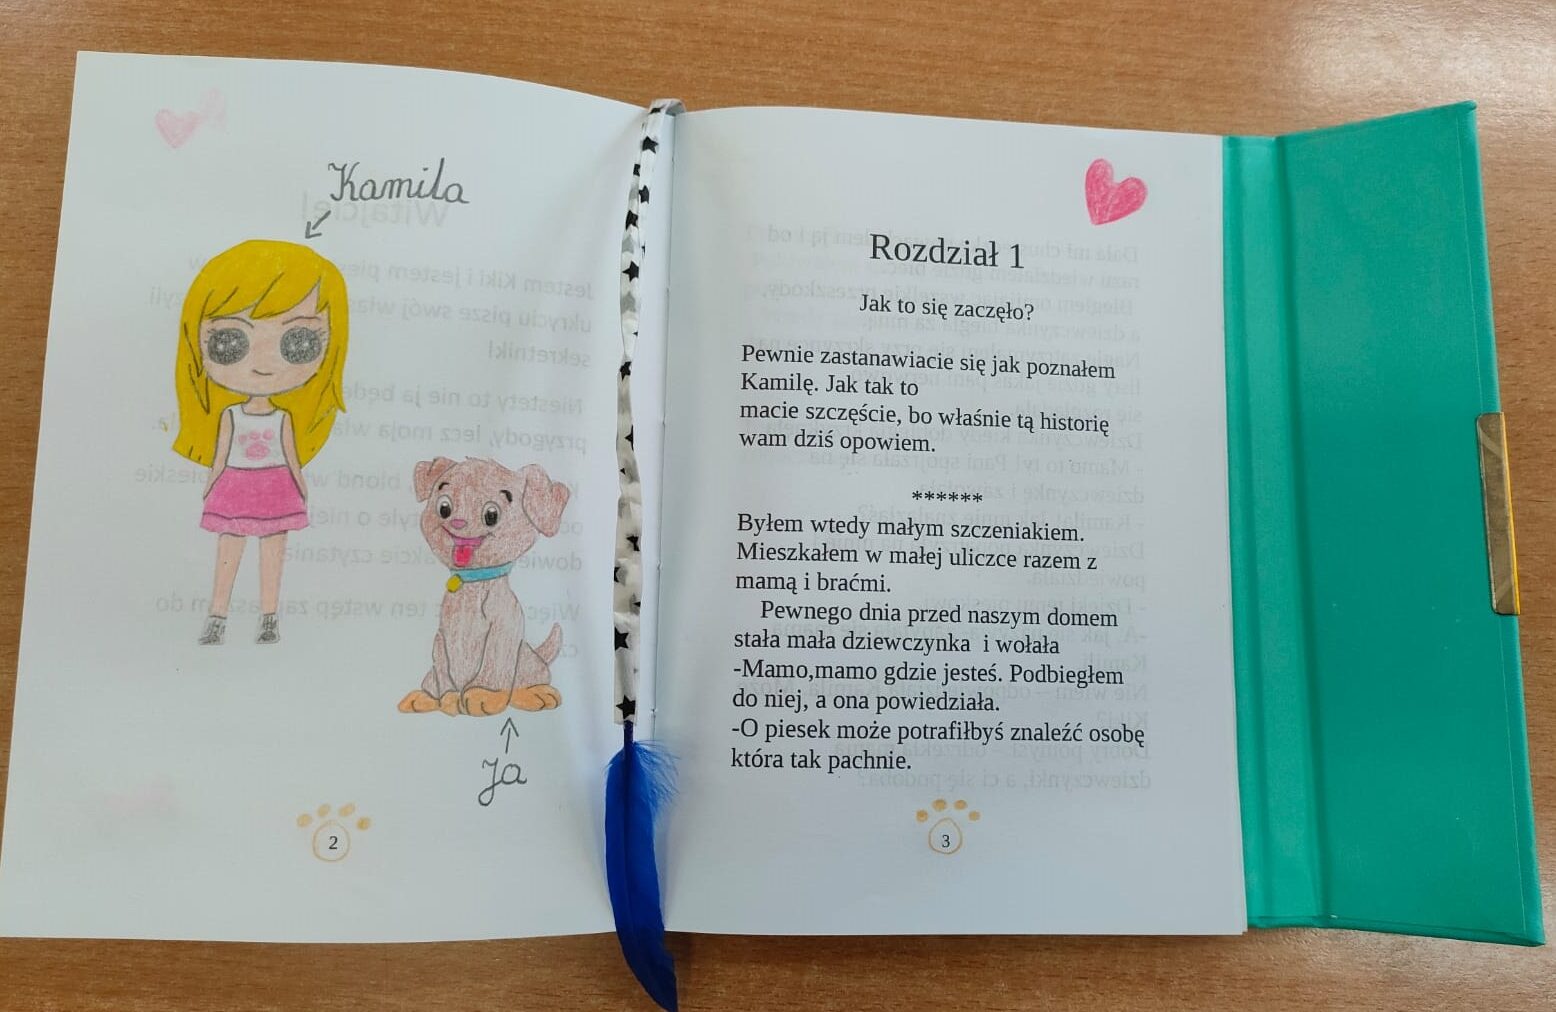 Kamila
Ja
2
Rozdział 1
Jak to się zaczęło?
Pewnie zastanawiacie się jak poznałem
Kamilę. Jak tak to
macie szczęście, bo właśnie tą historię
wam dziś opowiem.
******
Byłem wtedy małym szczeniakiem.
Mieszkałem w małej uliczce razem z
mamą i braćmi.
Pewnego dnia przed naszym domem
stała mała dziewczynka i wołała
-Mamo,mamo gdzie jesteś. Podbiegłem
do niej, a ona powiedziała.
-O piesek może potrafiłbyś znaleźć osobę
która tak pachnie.
3